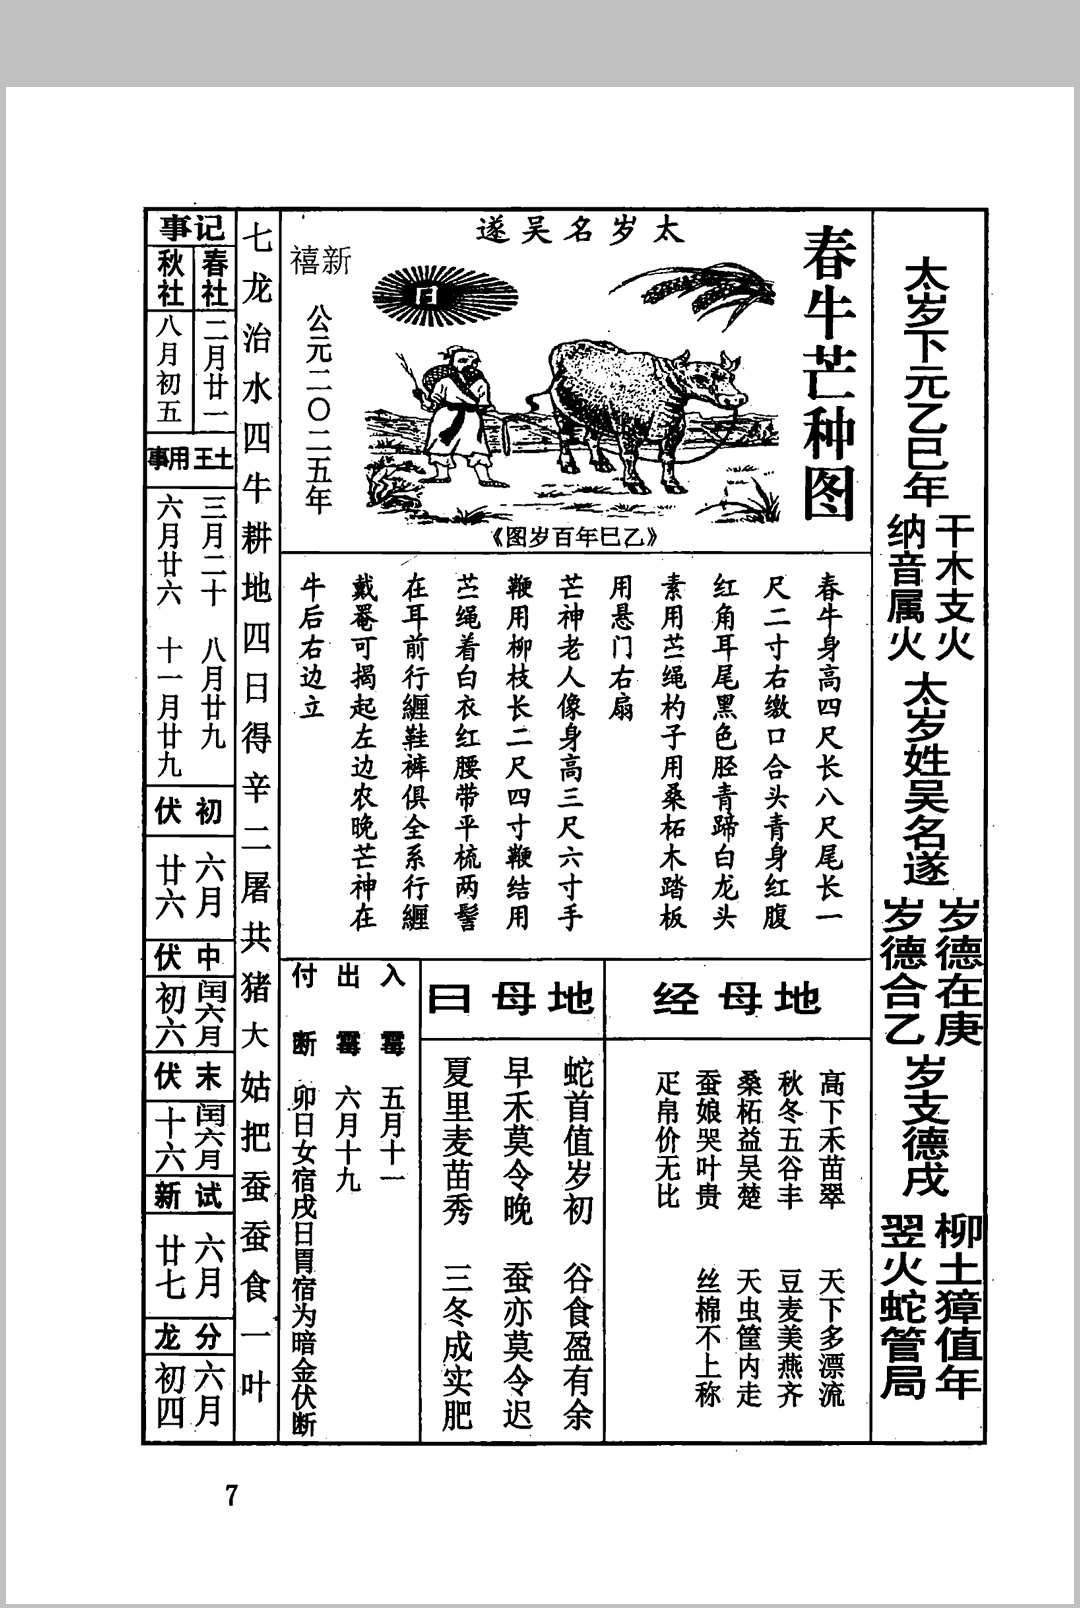 太岁下元乙巳年
干木支火
纳音属火
太岁姓吴名遂
岁德在庚
岁德合乙
岁支德戌
柳土獐值年
翌火蛇管局
春牛芒种图
太岁名吴遂
新禧
公元二〇二五年
日
《乙巳年百岁图》
春牛身高四尺长八尺尾长一
尺二寸右缴口合头青身红腹
红角耳尾黑色胫青蹄白龙头
素用苎绳杓子用桑柘木踏板
用悬门右扇
芒神老人像身高三尺六寸手
鞭用柳枝长二尺四寸鞭结用
苎绳着白衣红腰带平梳两髻
在耳前行缠鞋裤俱全系行缠
戴罨可揭起左边农晚芒神在
牛后右边立
地母经
高下禾苗翠 天下多漂流
秋冬五谷丰 豆麦美燕齐
桑柘益吴楚 天虫筐内走
蚕娘哭叶贵 丝棉不上称
疋帛价无比
地母曰
蛇首值岁初 谷食盈有余
早禾莫令晚 蚕亦莫令迟
夏里麦苗秀 三冬成实肥
入霉 五月十一
出霉 六月十九
付断 卯日女宿戌日胃宿为暗金伏断
七龙治水四牛耕地四日得辛二屠共猪大姑把蚕蚕食一叶
记事
春社
二月廿一
秋社
八月初五
土王用事
三月二十 八月廿九
六月廿六 十一月廿九
初伏
六月
廿六
中伏
闰六月
初六
末伏
闰六月
十六
试新
六月
廿七
分龙
六月
初四
7